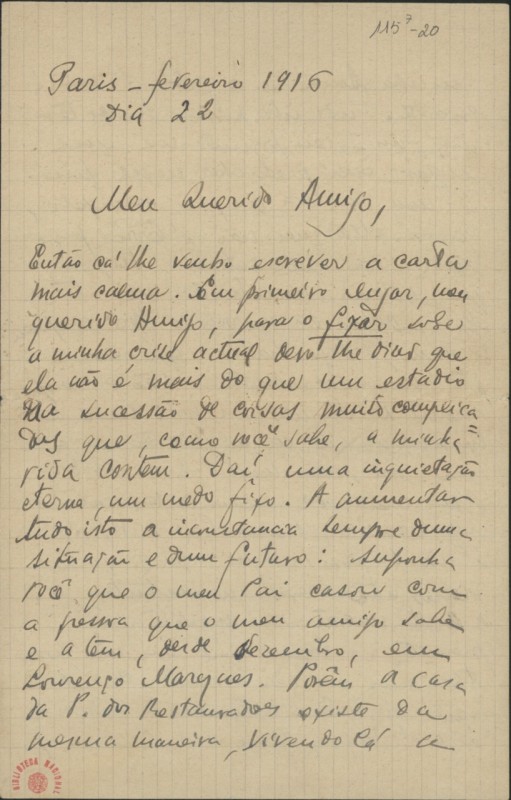 115⁷-20
Paris - fevereiro 1916
Dia 22
Meu Querido Amigo,
Então cá lhe venho escrever a carta
mais calma. Em primeiro lugar, meu
querido Amigo, para o fixar sobre
a minha crise actual devo lhe dizer que
ela não é mais do que um estadio
na sucessão de coisas muito complica
das que, como você sabe, a minha
vida contem. Daí uma inquietação
eterna, um medo fixo. A aumentar
tudo isto a inconstancia sempre duma
situação e dum futuro: suponha
você que o meu Pai casou com
a pessoa que o meu amigo sabe
e a tem, desde dezembro, em
Lourenço Marques. Porêm a casa
da P. dos Restauradores existe da
mesma maneira, vivendo lá a
BIBLIOTECA NACIONAL